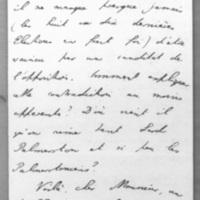 il ne manque presque jamais
(les huit ou dix dernières
élections en font foi) d'être
vaincu par un candidat de
l'opposition. Comment expliquer
cette contradiction au moins
apparente? D'où vient-il
qu'on renie tant Lord
Palmerston et si peu les
Palmerstoniens?
Voilà, cher Monsieur, un